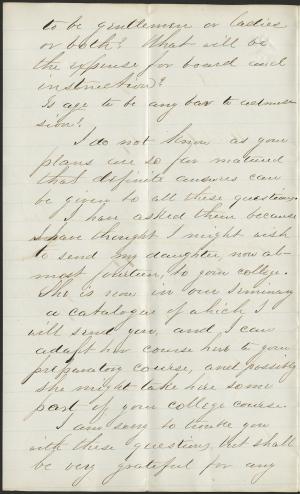 to be gentlemen or ladies
or both? What will be
the expense for board and
instruction?
Is age to be any bar to admis-
sion?
I do not know as your
plans are so far matured
that definite answers can
be given to all these questions.
I have asked them because
I have thought I might wish
to send my daughter, now al-
most fourteen, to your college.
She is now in our seminary
a catalogue of which I
will send you, and I can
adapt her course here to your
preparatory course, and possibly
she might take here some
part of your college course.
I am sorry to trouble you
with these questions, but shall
be very grateful for any